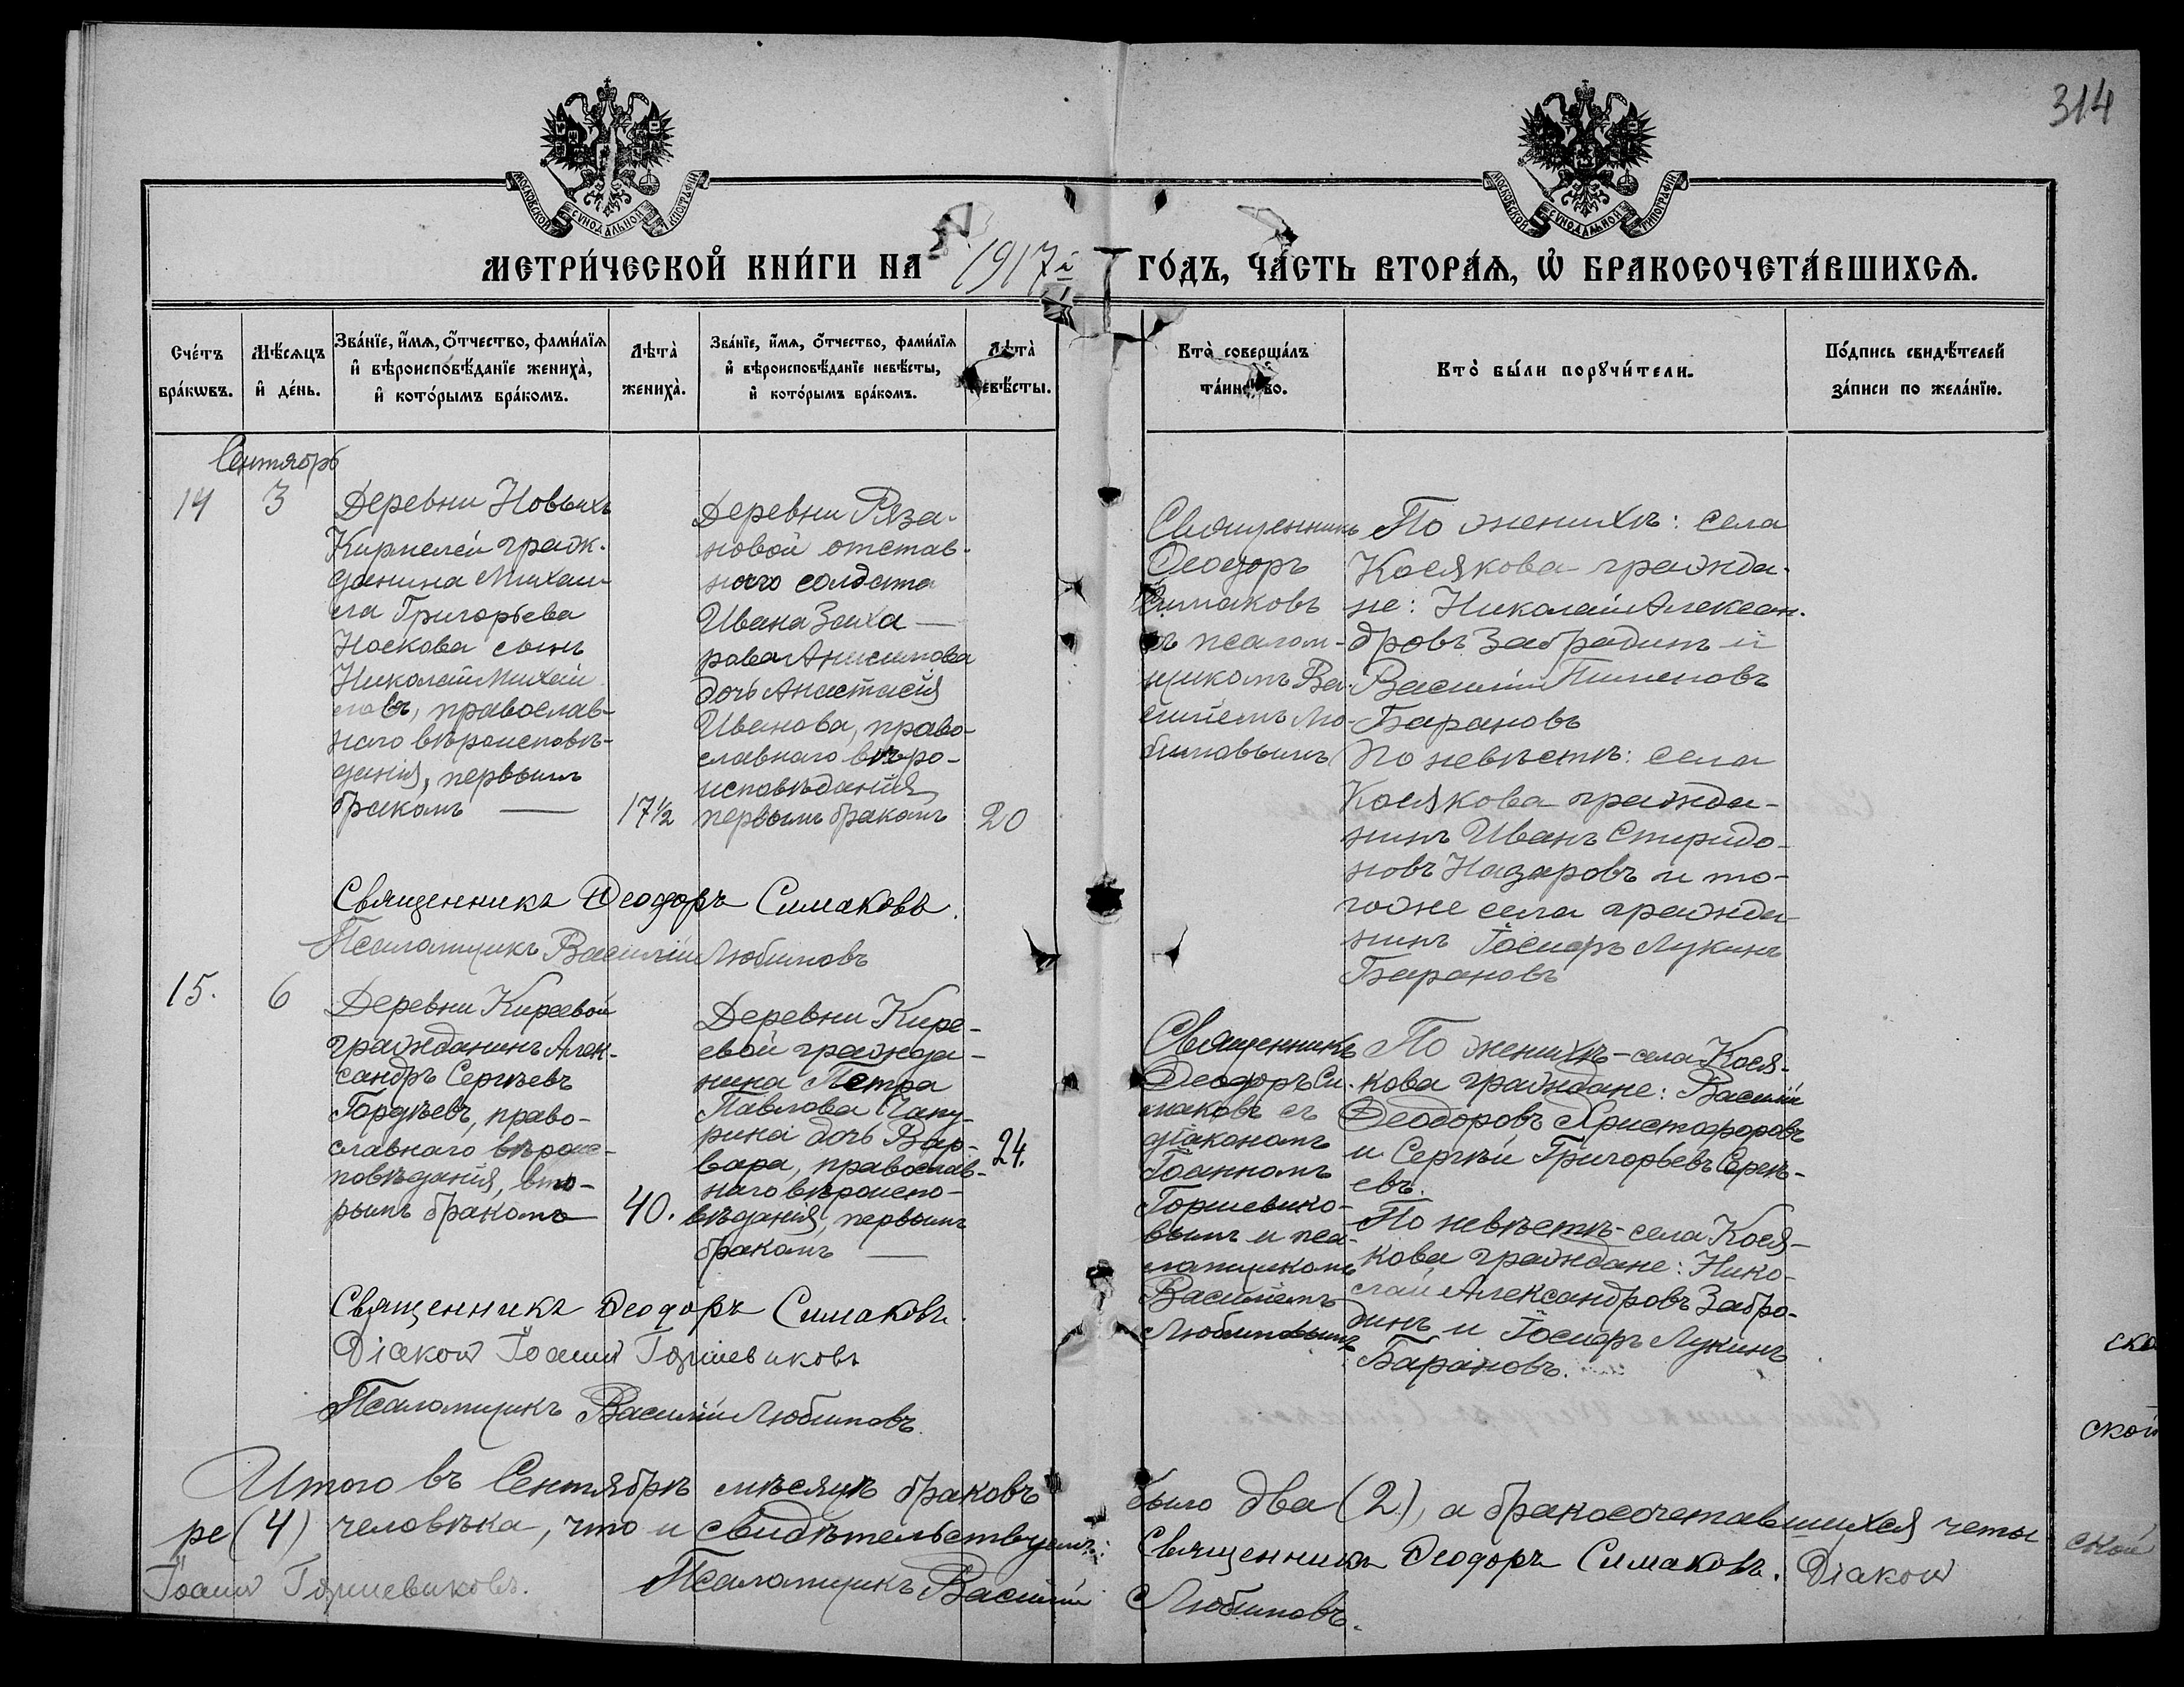 314
МОСКОВСКОЙ СѴНОДАЛЬНОЙ ТИПОГРАФІИ
МОСКОВСКОЙ СѴНОДАЛЬНОЙ ТИПОГРАФІИ
МЕТРИ́ЧЕСКОЙ КНИ́ГИ НА 1917 й ГО́ДЪ, ЧА́СТЬ ВТОРА́Ѧ, Ѽ БРАКОСОЧЕТА́ВШИХСѦ.
Сче́тъ
бра́кѡвъ.
Мѣ́сѧцъ
и҆ де́нь.
Зва́нїе, и҆́мѧ, ѻ҆́тчество, фами́лїѧ
и҆ вѣроисповѣ́данїе жениха̀,
и҆ кото́рымъ бра́комъ.
Лѣта̀
жениха̀.
Зва́нїе, и҆́мѧ, ѻ҆́тчество, фами́лїѧ
и҆ вѣроисповѣ́данїе невѣ́сты,
и҆ кото́рымъ бра́комъ.
Лѣта̀
невѣ́сты.
Кто̀ соверша́лъ
та́инство.
Кто̀ бы́ли порꙋчи́тели.
По́дпись свидѣ́телей
за́писи по жела́нїю.
Сентябрь
14
3
Деревни Новыхъ
Кирпелей граж-
данина Михаи-
ла Григорьева
Носкова сынъ
Николай Михаи-
ловъ, православ-
наго вѣроисповѣ-
данія, первымъ
бракомъ —
17½
Деревни Ряза-
новой отстав-
ного солдата
Ивана Заха-
рова Анисимова
дочь Анастасія
Иванова, право-
славнаго вѣро-
исповѣданія,
первымъ бракомъ
20
Священникъ
Ѳеодоръ
Симаковъ
съ псалом-
щикомъ Ва-
силіемъ Лю-
бимовымъ
По женихѣ: села
Косякова гражда-
не: Николай Алексан-
дровъ Забродинъ и
Василій Пименовъ
Барановъ
По невѣстѣ: села
Косякова гражда-
нинъ Иванъ Спиридо-
новъ Назаровъ и то-
гоже села гражда-
нинъ Іосифъ Лукинъ
Барановъ
Священникъ Ѳеодоръ Симаковъ.
Псаломщикъ Василій Любимовъ
15.
6
Деревни Киреевой
гражданинъ Алек-
сандръ Сергѣевъ
Гордѣевъ, право-
славнаго вѣроис-
повѣданія, вто-
рымъ бракомъ
40.
Деревни Кире-
евой гражда-
нина Петра
Павлова Чапу-
рина дочь Вар-
вара, православ-
наго вѣроиспо-
вѣданія, первымъ
бракомъ —
24.
Священникъ
Ѳеодоръ Си-
маковъ съ
діакономъ
Іоанномъ
Горшевико-
вымъ и пса-
ломщикомъ
Василіемъ
Любимовымъ
По женихѣ – села Кося-
кова граждане: Василій
Ѳеодоровъ Христофоровъ
и Сергѣй Григорьевъ Сергѣ-
евъ.
По невѣстѣ – села Кося-
кова граждане: Нико-
лай Александровъ Забро-
динъ и Іосифъ Лукинъ
Барановъ.
Священникъ Ѳеодоръ Симаковъ.
Діаконъ Іоаннъ Горшевиковъ
Псаломщикъ Василій Любимовъ.
Итого въ Сентябрѣ мѣсяцѣ браковъ было два (2), а бракосочетавшихся четы
ре (4) человѣка, что и свидѣтельствуемъ: Священникъ Ѳеодоръ Симаковъ. Діаконъ
Іоаннъ Горшевиковъ. Псаломщикъ Василій Любимовъ.
ско
ской
ской